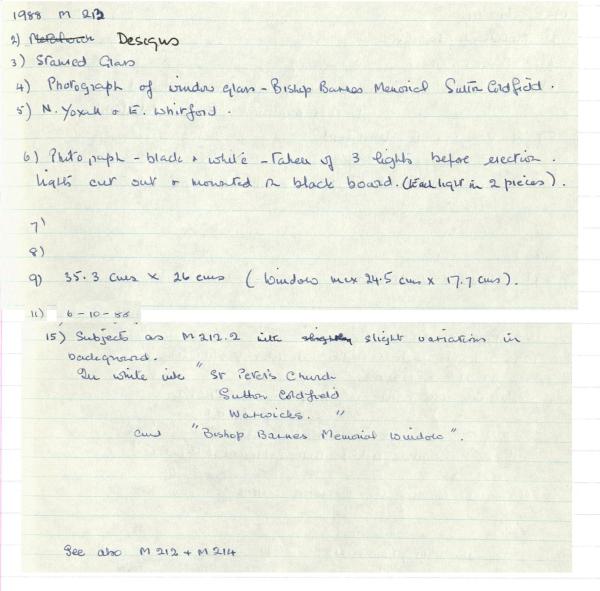 1988 M 213
2) Designs
3) Stained Glass
4) Photograph of window glass - Bishop Barnes Memorial Sutton Coldfield.
5) N. Yoxall & E. Whitford.
6) Photograph - black & white - Taken of 3 lights before erection.
lights cut out & mounted on black board. (Each light in 2 pieces).
7)
8)
9) 35.3 cms x 26 cms (window max 24.5 cms x 17.7 cms).
11) 6-10-88
15) Subjects as M 212.2 with slight variation in
background.
In white ink "St Peter's Church
Sutton Coldfield
Warwicks. "
and "Bishop Barnes Memorial Window".
See also M 212 + M 214